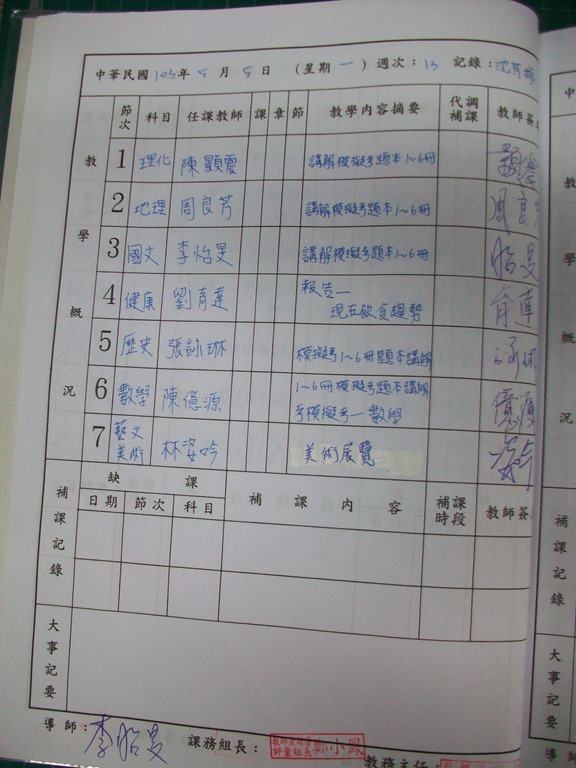 中華民國 103年 5 月 5 日 (星期 一) 週次: 13 記錄:
教學概況 節次 科目 任課教師 課 章 節 教學內容摘要 代調補課 教師簽
1 理化 陳顥震 講解模擬考題本1~6冊
2 地理 周良芳 講解模擬考題本1~6冊 周良
3 國文 李怡旻 講解模擬考題本1~6冊 怡旻
4 健康 劉育達 報告—
現在飲食趨勢
5 歷史 張詠琳 模擬考1~6冊題本講解 詠琳
6 數學 陳億源 1~6冊模擬考題本講解 億源
考模擬考—數學
7 藝文 林姿吟 美術展覽 姿吟
美術
補課記錄 缺課 補課內容 補課時段 教師簽
日期 節次 科目
大事記要
導師: 李怡旻 課務組長: 教務主任:
中
教
學
概
況
補
課
記
錄
大
事
記
要
導